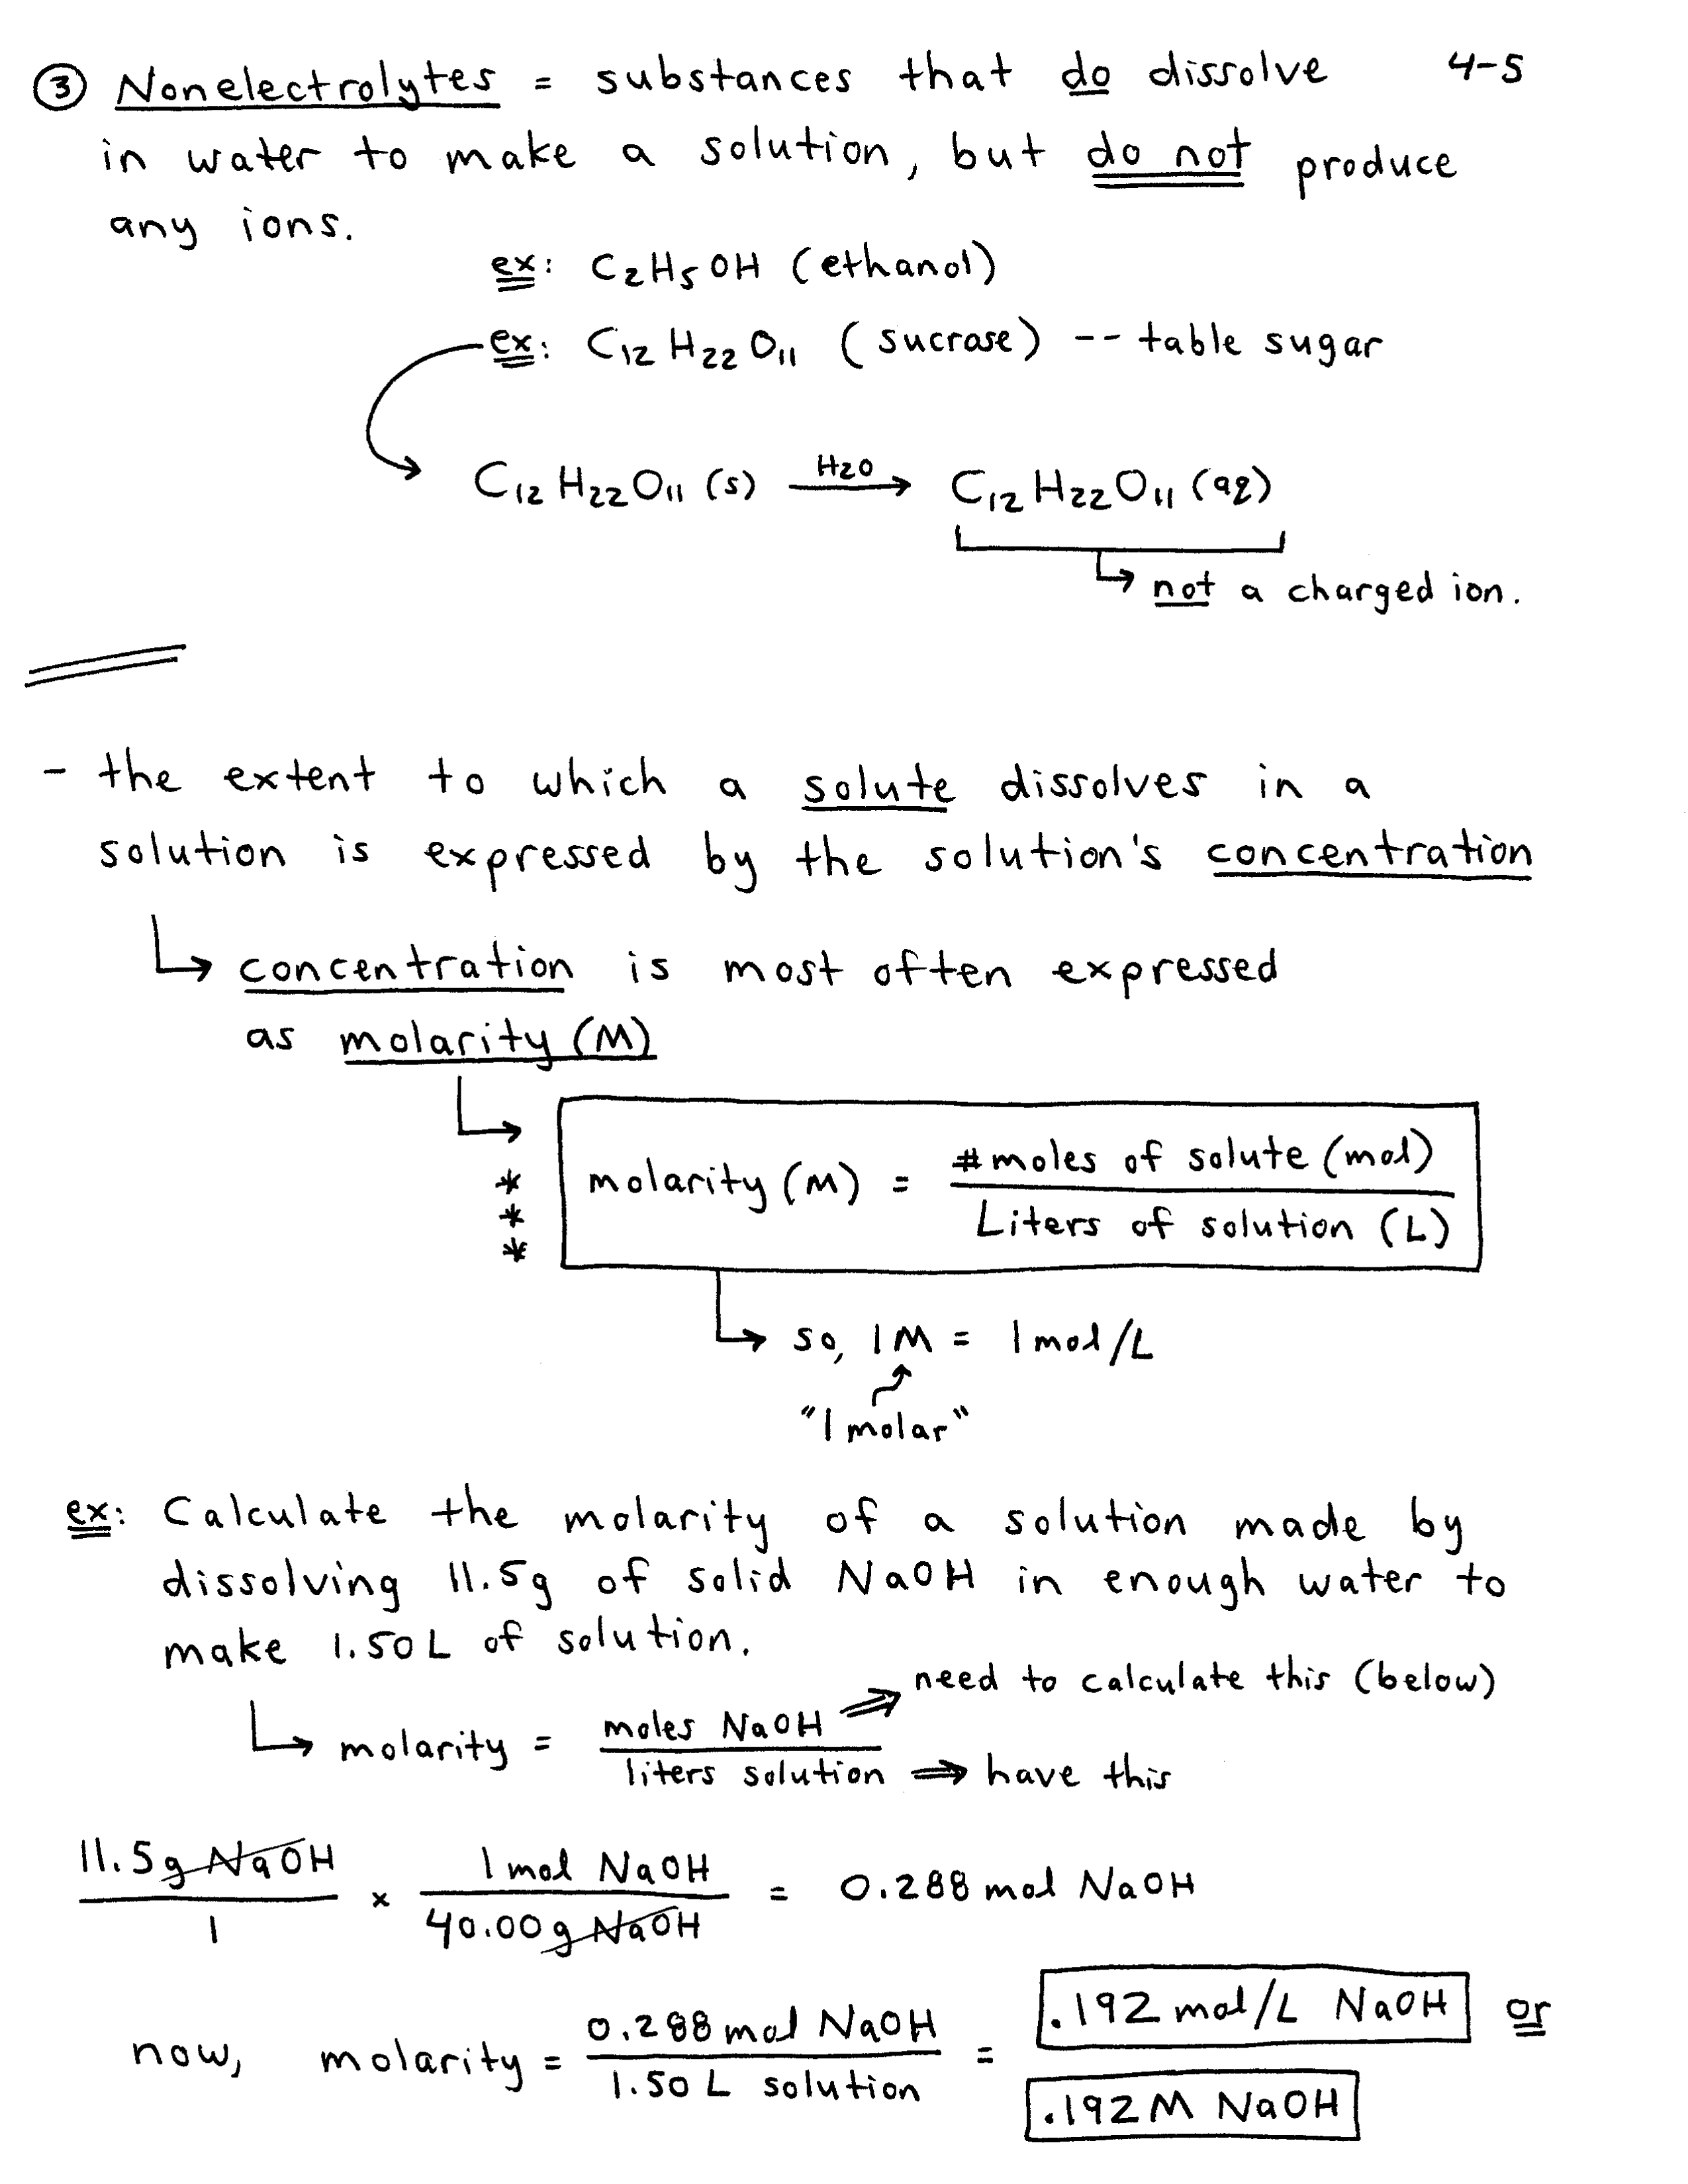 ③ Nonelectrolytes = substances that do dissolve 4-5
in water to make a solution, but do not produce
any ions.
ex: C₂H₅OH (ethanol)
ex: C₁₂H₂₂O₁₁ (sucrose) -- table sugar
C₁₂H₂₂O₁₁ (s) H₂O → C₁₂H₂₂O₁₁ (aq)
↳ not a charged ion.
- the extent to which a solute dissolves in a
solution is expressed by the solution's concentration
↳ concentration is most often expressed
as molarity (M)
↳
* * * molarity (M) = # moles of solute (mol) / Liters of solution (L)
↳ so, 1M = 1 mol/L
"1 molar"
ex: Calculate the molarity of a solution made by
dissolving 11.5g of solid NaOH in enough water to
make 1.50L of solution.
↳ molarity = moles NaOH ⇒ need to calculate this (below)
liters solution ⇒ have this
11.5g NaOH / 1 × 1 mol NaOH / 40.00g NaOH = 0.288 mol NaOH
now, molarity = 0.288 mol NaOH / 1.50 L solution = .192 mol/L NaOH or
.192M NaOH